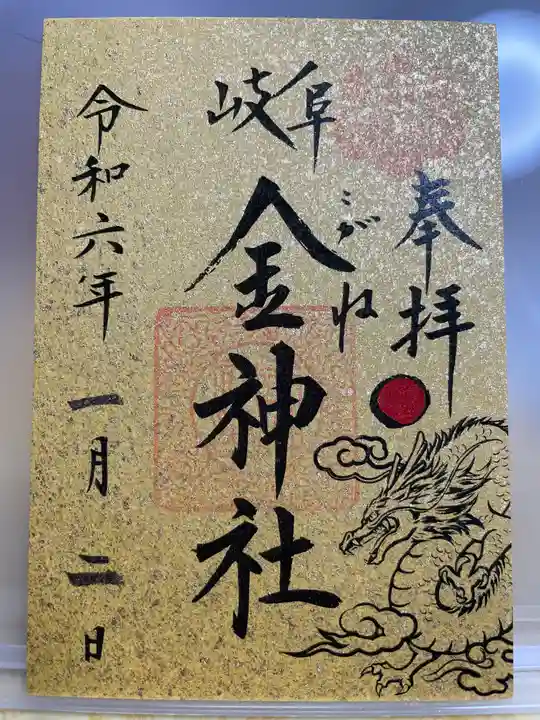 奉拝
岐阜
こがね
金神社
令和六年
一月二日